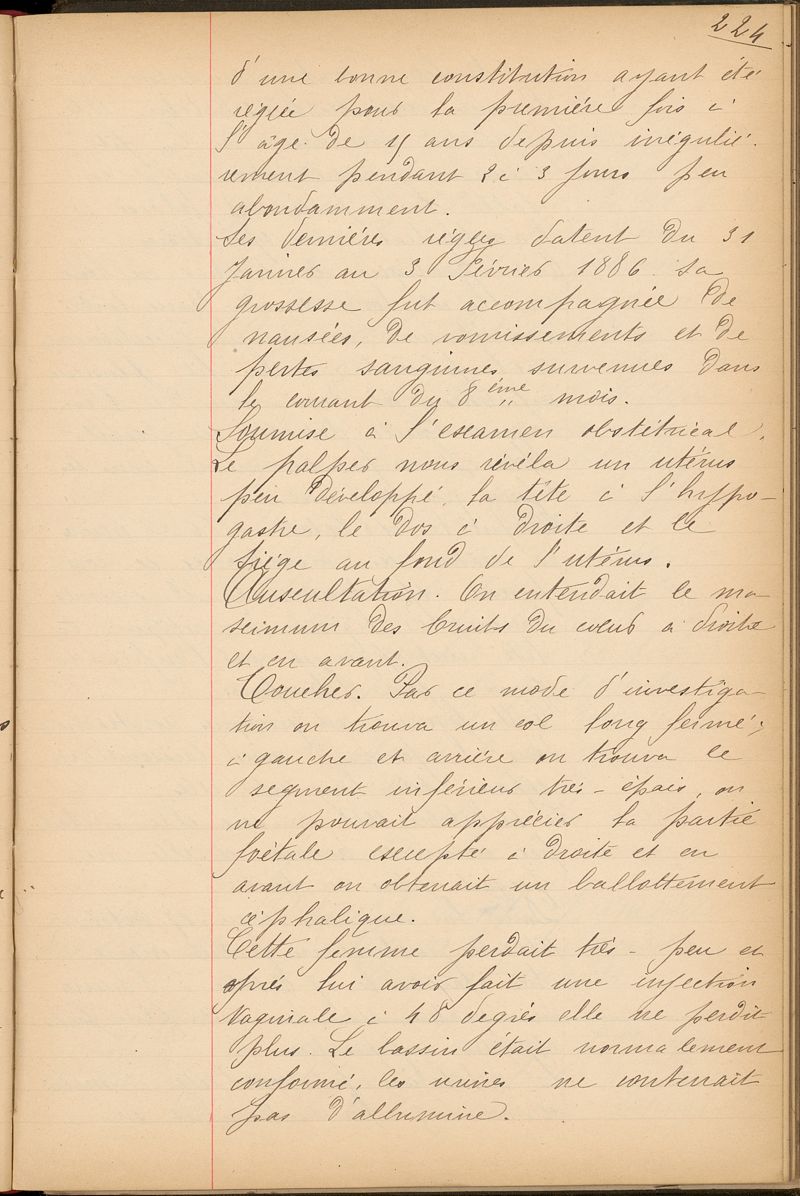 224
d'une bonne constitution ayant été
réglée pour la première fois à
l'âge de 15 ans depuis irréguliè-
rement pendant 2 à 3 jours peu
abondamment.
Ses dernières règles datent du 31
Janvier au 3 Février 1886. Sa
grossesse fut accompagnée de
nausées, de vomissements et de
pertes sanguines survenues dans
le courant du 8ème mois.
Soumise à l'examen obstétrical.
Le palper nous révéla un utérus
peu développé, la tête à l'hypo-
gastre, le dos à droite et le
siège au fond de l'utérus.
Auscultation. On entendait le ma-
ximum des bruits du cœur à droite
et en avant.
Toucher. Par ce mode d'investiga-
tion on trouva un col long fermé,
à gauche et arrière on trouva le
segment inférieur très-épais, on
ne pouvait apprécier la partie
foétale excepté à droite et en
avant on obtenait un ballottement
céphalique.
Cette femme perdait très-peu et
après lui avoir fait une injection
vaginale à 48 degrés elle ne perdit
plus. Le bassin était normalement
conformé, les urines ne contenait
pas d'albumine.